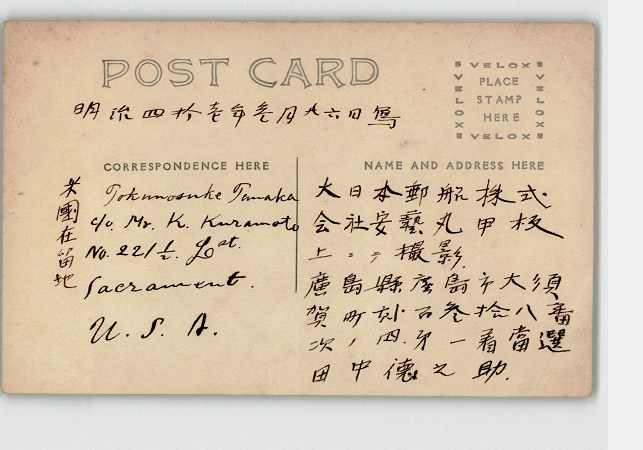 POST CARD
VELOX
PLACE
STAMP
HERE
VELOX
VELOX
VELOX
明治四拾壱年参月九六日寫
CORRESPONDENCE HERE
米國在留地
Tokunosuke Tanaka
c/o. Mr. K. Kuramoto
No. 221½. L st.
Sacrament.
U. S. A.
NAME AND ADDRESS HERE
大日本郵船株式
会社安藝丸甲板
上ニテ撮影
廣島縣廣島市大須
賀町 百参拾八番
次ノ四 第一着當選
田中德之助.